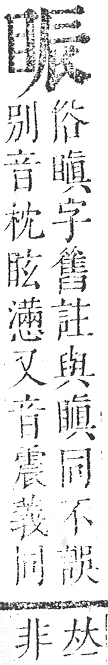 䀼
俗瞋字舊註與瞋同不誤
別音枕眩懣又音震義同